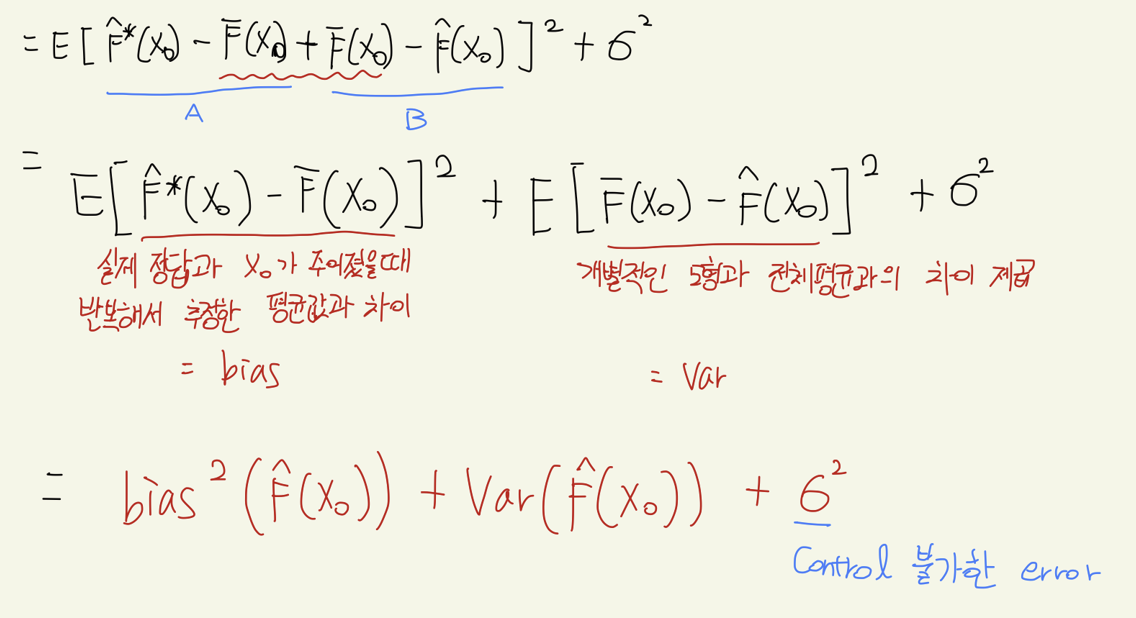 = E [ F̂*(X₀) − F̄(X₀) + F̄(X₀) − F̂(X₀) ]² + σ²
A B
= E [ F̂*(X₀) − F̄(X₀) ]² + E [ F̄(X₀) − F̂(X₀) ]² + σ²
실제 정답과 X₀가 주어졌을때
반복해서 추정한 평균값과 차이
= bias
개별적인 모형과 전체평균과의 차이 제곱
= Var
= bias² (F̂(X₀)) + Var(F̂(X₀)) + σ²
Control 불가한 error